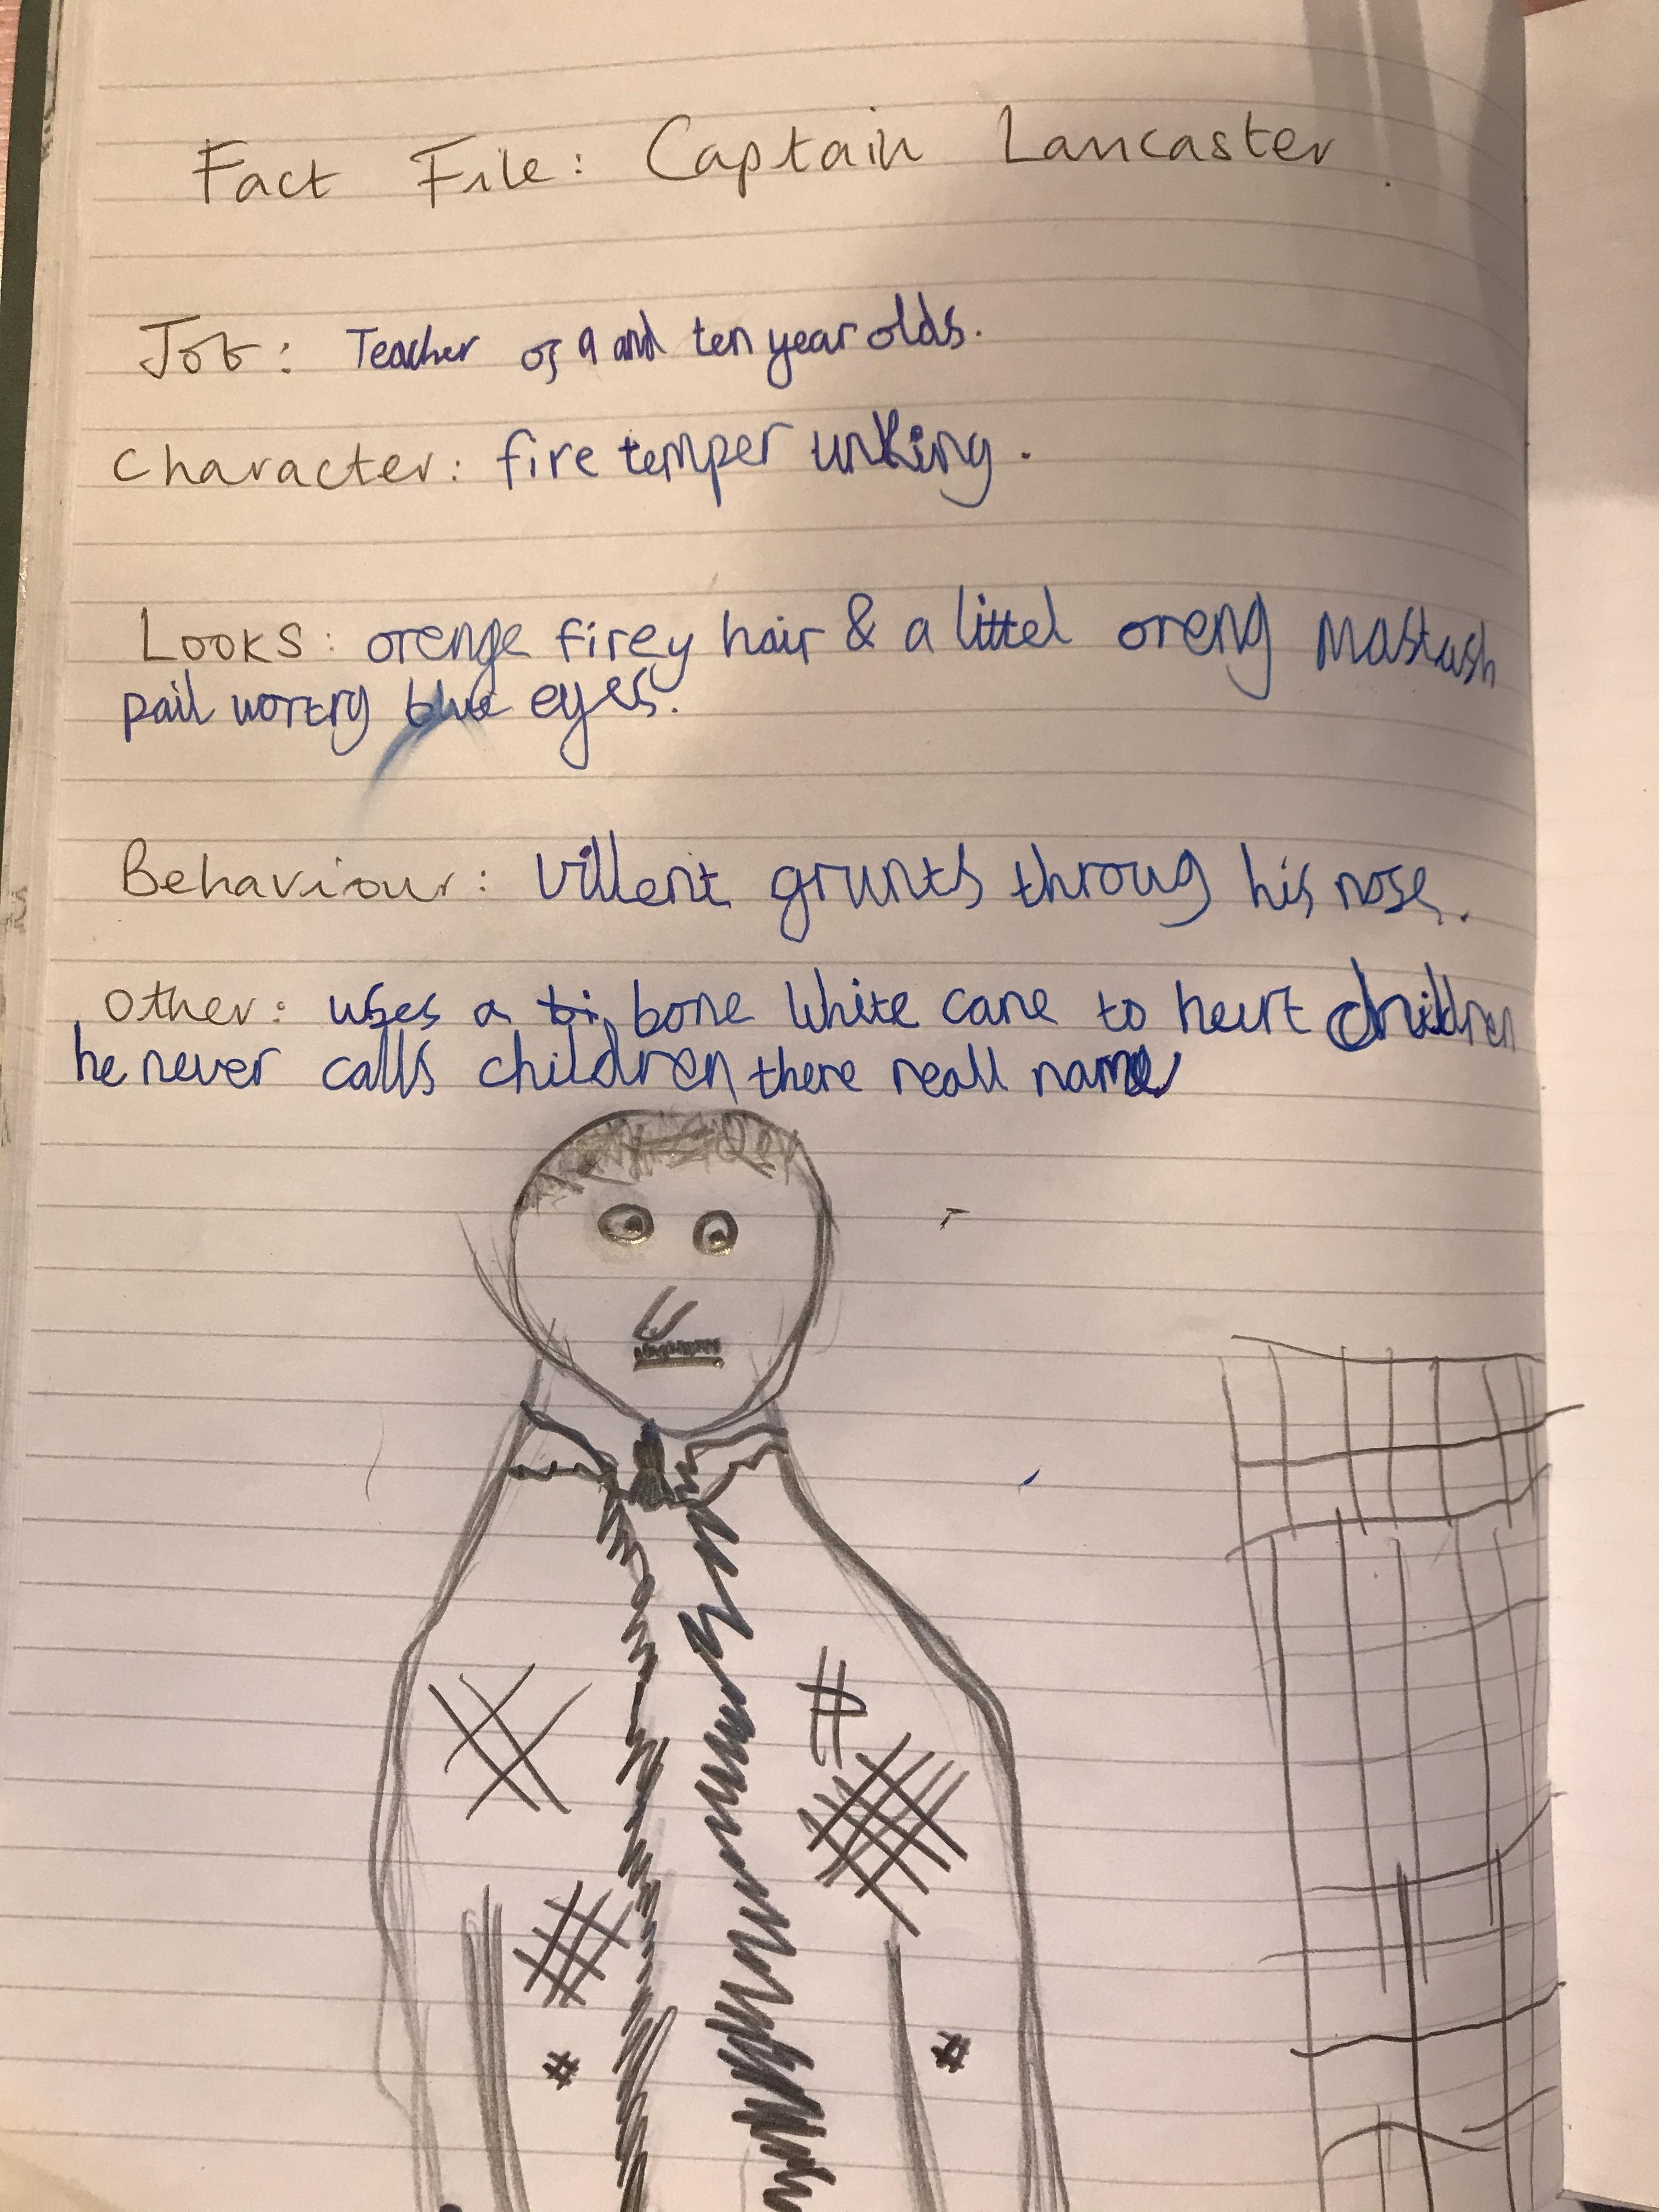 Fact File: Captain Lancaster.
Job: Teacher of 9 and ten year olds.
Character: fire temper unking.
Looks: orenge firey hair & a littel oreng mastush
pail wortry blue eyes.
Behaviour: villent grunts throug his nose.
Other: uses a bone white cane to heurt children
he never calls children there reall name